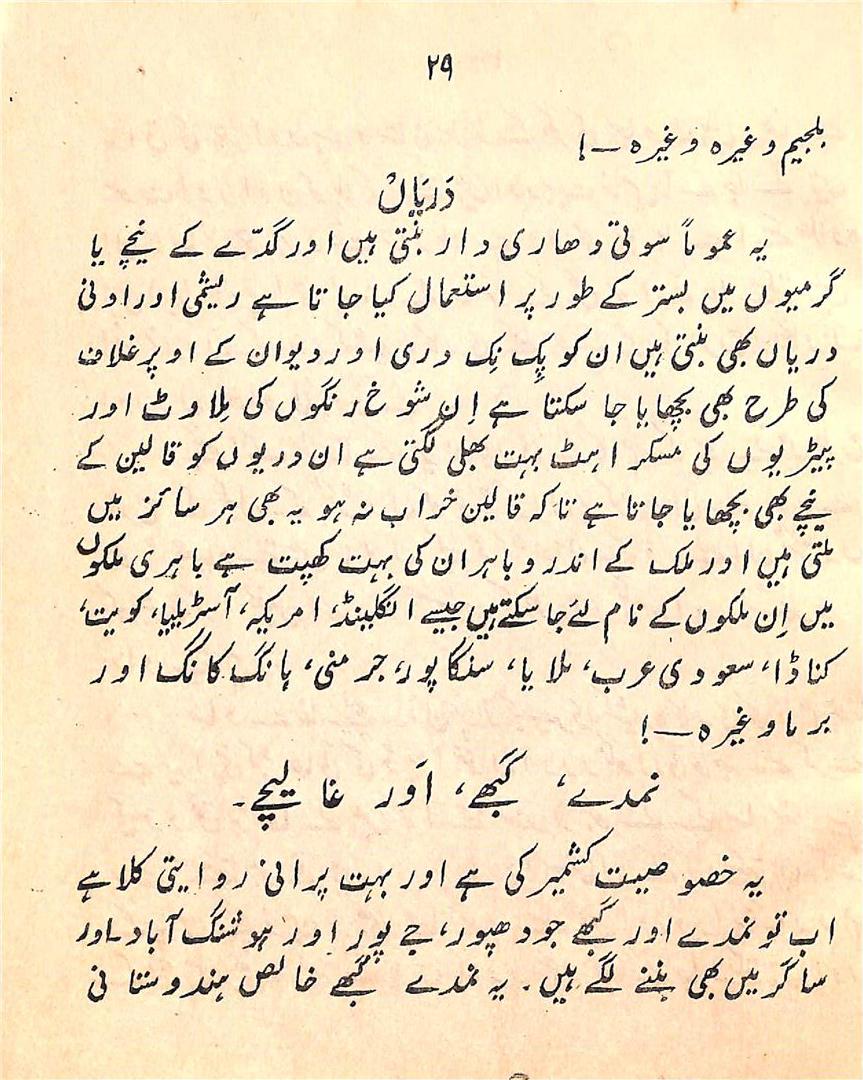 ۲۹
بلجیم وغیرہ وغیرہ —!
دَریَاں
یہ عموماً سوتی دھاری دار بنتی ہیں اور گدّے کے نیچے یا
گرمیوں میں بستر کے طور پر استعمال کیا جاتا ہے ریشمی اور اونی
دریاں بھی بنتی ہیں ان کو پِک نِک دری اور دیوان کے اوپر غلاف
کی طرح بھی بچھایا جا سکتا ہے اِن شوخ رنگوں کی مِلاوٹ اور
پیٹریوں کی مُسکراہٹ بہت بھلی لگتی ہے ان دریوں کو قالین کے
نیچے بھی بچھایا جاتا ہے تاکہ قالین خراب نہ ہو یہ بھی ہر سائز میں
ملتی ہیں اور ملک کے اندر و باہر ان کی بہت کھپت ہے باہری ملکوں
میں اِن ملکوں کے نام لئے جا سکتے ہیں جیسے انگلینڈ، امریکہ، آسٹریلیا، کویت،
کناڈا، سعودی عرب، ملایا، سنگاپور، جرمنی، ہانگ کانگ اور
برما وغیرہ —!
نمدے، گبھے، اَور غالیچے۔
یہ خصوصیت کشمیر کی ہے اور بہت پرانی روایتی کلا ہے
اب تو نمدے اور گبھے جودھپور، جے پور اور ہوشنگ آباد اور
ساگر میں بھی بننے لگے ہیں۔ یہ نمدے گبھے خالص ہندوستانی